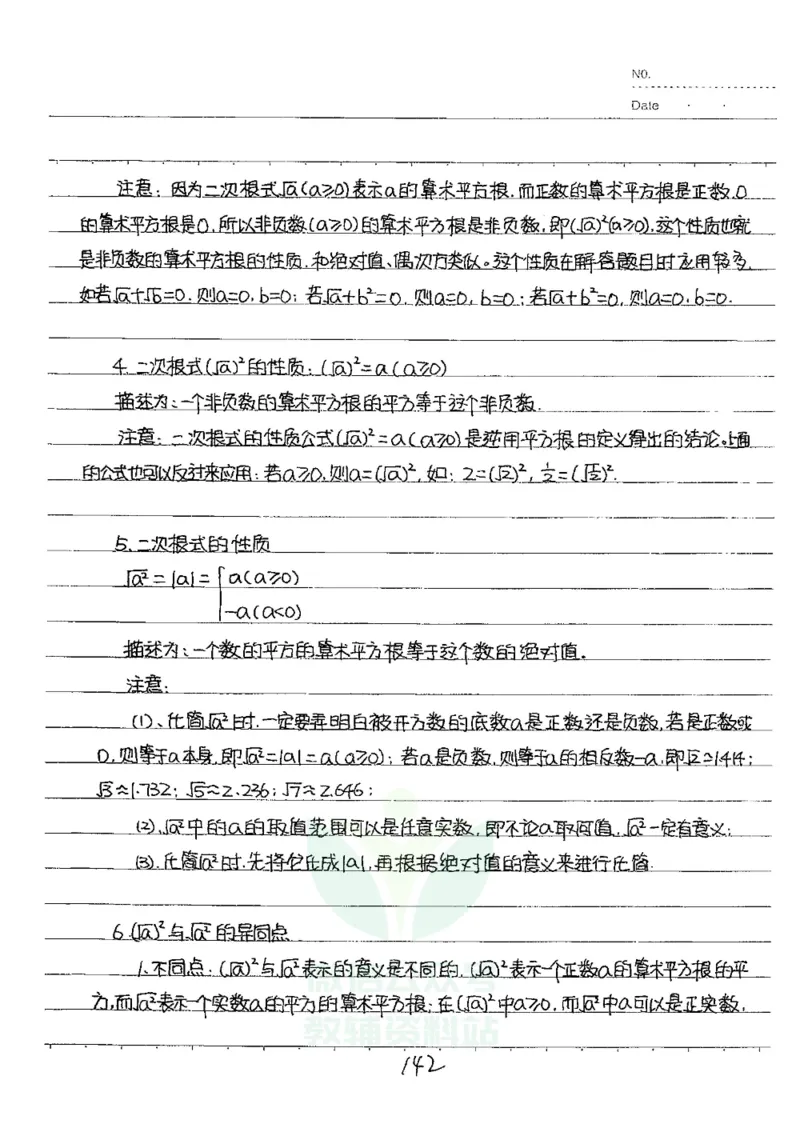 NO.
Date
注意：因为二次根式√a(a≥0)表示a的算术平方根,而正数的算术平方根是正数,0
的算术平方根是0,所以非负数(a≥0)的算术平方根是非负数,即(√a)²(a≥0),这个性质也就
是非负数的算术平方根的性质,和绝对值、偶次方类似。这个性质在解答题目时应用较多,
如若√a+√b=0,则a=0,b=0；若√a+b²=0,则a=0,b=0；若√a+b²=0,则a=0,b=0.
4.二次根式(√a)²的性质：(√a)²=a(a≥0)
描述为：一个非负数的算术平方根的平方等于这个非负数.
注意：二次根式的性质公式(√a)²=a(a≥0)是逆用平方根的定义得出的结论。上面
的公式也可以反过来应用：若a≥0,则a=(√a)²,如：2=(√2)²,1/2=(√1/2)².
5.二次根式的性质
√a²=|a|={a(a≥0)
-a(a<0)
描述为：一个数的平方的算术平方根等于这个数的绝对值.
注意：
(1)、化简√a²时,一定要弄明白被开方数的底数a是正数还是负数,若是正数或
0,则等于a本身,即√a²=|a|=a(a≥0)；若a是负数,则等于a的相反数-a,即√2≈1.414；
√3≈1.732；√5≈2.236；√7≈2.646；
(2)、√a²中的a的取值范围可以是任意实数,即不论a取何值,√a²一定有意义；
(3).化简√a²时,先将它化成|a|,再根据绝对值的意义来进行化简.
6.(√a)²与√a²的异同点
1.不同点：(√a)²与√a²表示的意义是不同的,(√a)²表示一个正数a的算术平方根的平
方,而√a²表示一个实数a的平方的算术平方根；在(√a)²中a≥0,而√a²中a可以是正实数,
微信公众号
教辅资料站
142